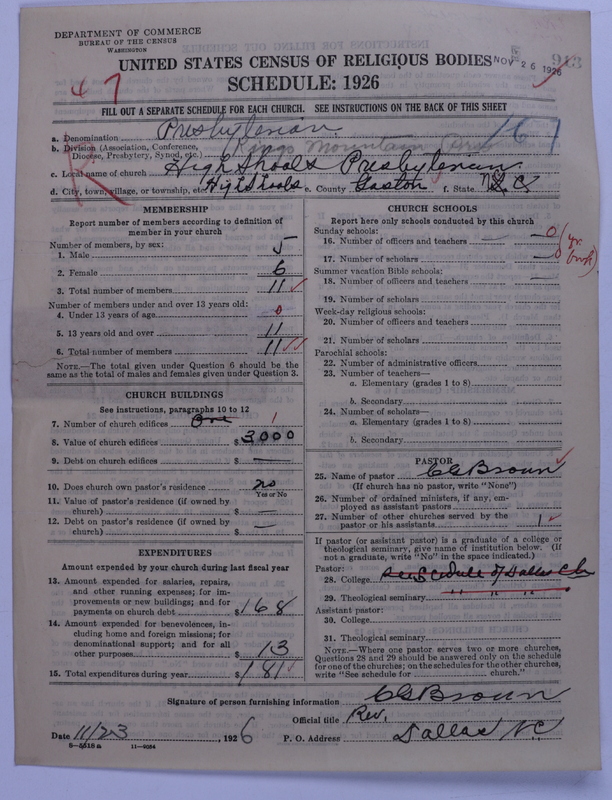 DEPARTMENT OF COMMERCE
BUREAU OF THE CENSUS
WASHINGTON
UNITED STATES CENSUS OF RELIGIOUS BODIES
NOV 26 1926
943
SCHEDULE: 1926
47
FILL OUT A SEPARATE SCHEDULE FOR EACH CHURCH. SEE INSTRUCTIONS ON THE BACK OF THIS SHEET
167
a. Denomination Presbyterian
b. Division (Association, Conference, Diocese, Presbytery, Synod, etc.) Kings Mountain
c. Local name of church High Shoals Presbyterian
d. City, town, village, or township, etc. High Shoals e. County Gaston f. State N.C.
MEMBERSHIP
Report number of members according to definition of member in your church
Number of members, by sex:
1. Male 5
2. Female 6
3. Total number of members 11
Number of members under and over 13 years old:
4. Under 13 years of age 0
5. 13 years old and over 11
6. Total number of members 11
NOTE.—The total given under Question 6 should be the same as the total of males and females given under Question 3.
CHURCH BUILDINGS
See instructions, paragraphs 10 to 12
7. Number of church edifices One 1
8. Value of church edifices $3000
9. Debt on church edifices $ —
10. Does church own pastor's residence no
Yes or No
11. Value of pastor's residence (if owned by church) $ —
12. Debt on pastor's residence (if owned by church) $ —
EXPENDITURES
Amount expended by your church during last fiscal year
13. Amount expended for salaries, repairs, and other running expenses; for improvements or new buildings; and for payments on church debt $168
14. Amount expended for benevolences, including home and foreign missions; for denominational support; and for all other purposes $13
15. Total expenditures during year $181
CHURCH SCHOOLS
Report here only schools conducted by this church
Sunday schools:
16. Number of officers and teachers — 0
17. Number of scholars — 0
Summer vacation Bible schools:
18. Number of officers and teachers —
19. Number of scholars
Week-day religious schools:
20. Number of officers and teachers
21. Number of scholars
Parochial schools:
22. Number of administrative officers
23. Number of teachers—
a. Elementary (grades 1 to 8)
b. Secondary
24. Number of scholars—
a. Elementary (grades 1 to 8)
b. Secondary
PASTOR
25. Name of pastor C G Brown
(If church has no pastor, write "None")
26. Number of ordained ministers, if any, employed as assistant pastors
27. Number of other churches served by the pastor or his assistants 1
If pastor (or assistant pastor) is a graduate of a college or theological seminary, give name of institution below. (If not a graduate, write "No" in the space indicated.)
Pastor:
28. College See Schedule of Dallas Ch
29. Theological seminary " " "
Assistant pastor:
30. College
31. Theological seminary
NOTE.—Where one pastor serves two or more churches, Questions 28 and 29 should be answered only on the schedule for one of the churches; on the schedules for the other churches, write "See schedule for ........ church."
Signature of person furnishing information C G Brown
Official title Rev.
Date 11/23, 1926
P. O. Address Dallas N.C.
8-5518a 11-9084